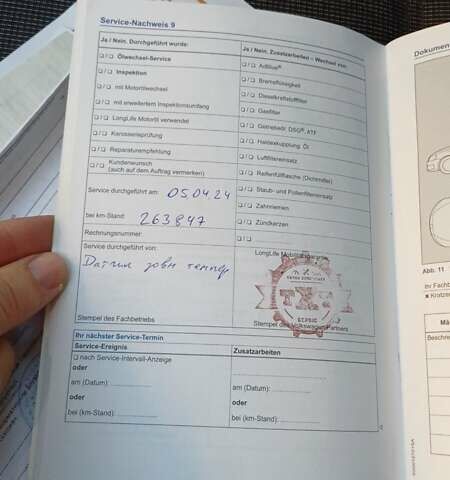 Service-Nachweis 9
Ja / Nein. Durchgeführt wurde:
❑ / ❑ Ölwechsel-Service
❑ / ❑ Inspektion
❑ / ❑ mit Motorölwechsel
❑ / ❑ mit erweitertem Inspektionsumfang
❑ / ❑ LongLife Motoröl verwendet
❑ / ❑ Karosserieprüfung
❑ / ❑ Reparaturempfehlung
❑ / ❑ Kundenwunsch
(auch auf dem Auftrag vermerken)
Service durchgeführt am: 05.04.24
bei km-Stand: 263847
Rechnungsnummer:
Service durchgeführt von:
Датчик
Stempel des Fachbetriebs
Ja / Nein. Zusatzarbeiten – Wechsel von:
❑ / ❑ AdBlue®
❑ / ❑ Bremsflüssigkeit
❑ / ❑ Dieselkraftstofffilter
❑ / ❑ Gasfilter
❑ / ❑ Getriebeöl: DSG®, ATF
❑ / ❑ Haldexkupplung: Öl
❑ / ❑ Luftfiltereinsatz
❑ / ❑ Reifenfüllflasche (Dichtmittel)
❑ / ❑ Staub- und Pollenfiltereinsatz
❑ / ❑ Zahnriemen
❑ / ❑ Zündkerzen
❑ / ❑
LongLife Mobilitätsgarantie
Stempel des Volkswagen Partners
Ihr nächster Service-Termin
Service-Ereignis
❑ nach Service-Intervall-Anzeige
oder
am (Datum):
oder
bei (km-Stand):
Zusatzarbeiten
oder
am (Datum):
oder
bei (km-Stand):
Dokumen
Abb. 11
Ihr Fachb
■ Kratzer
Mä
Beschre